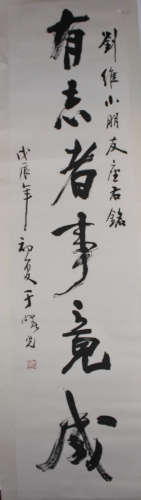 劉維小朋友座右銘
有志者事竟成
戊辰年初夏于